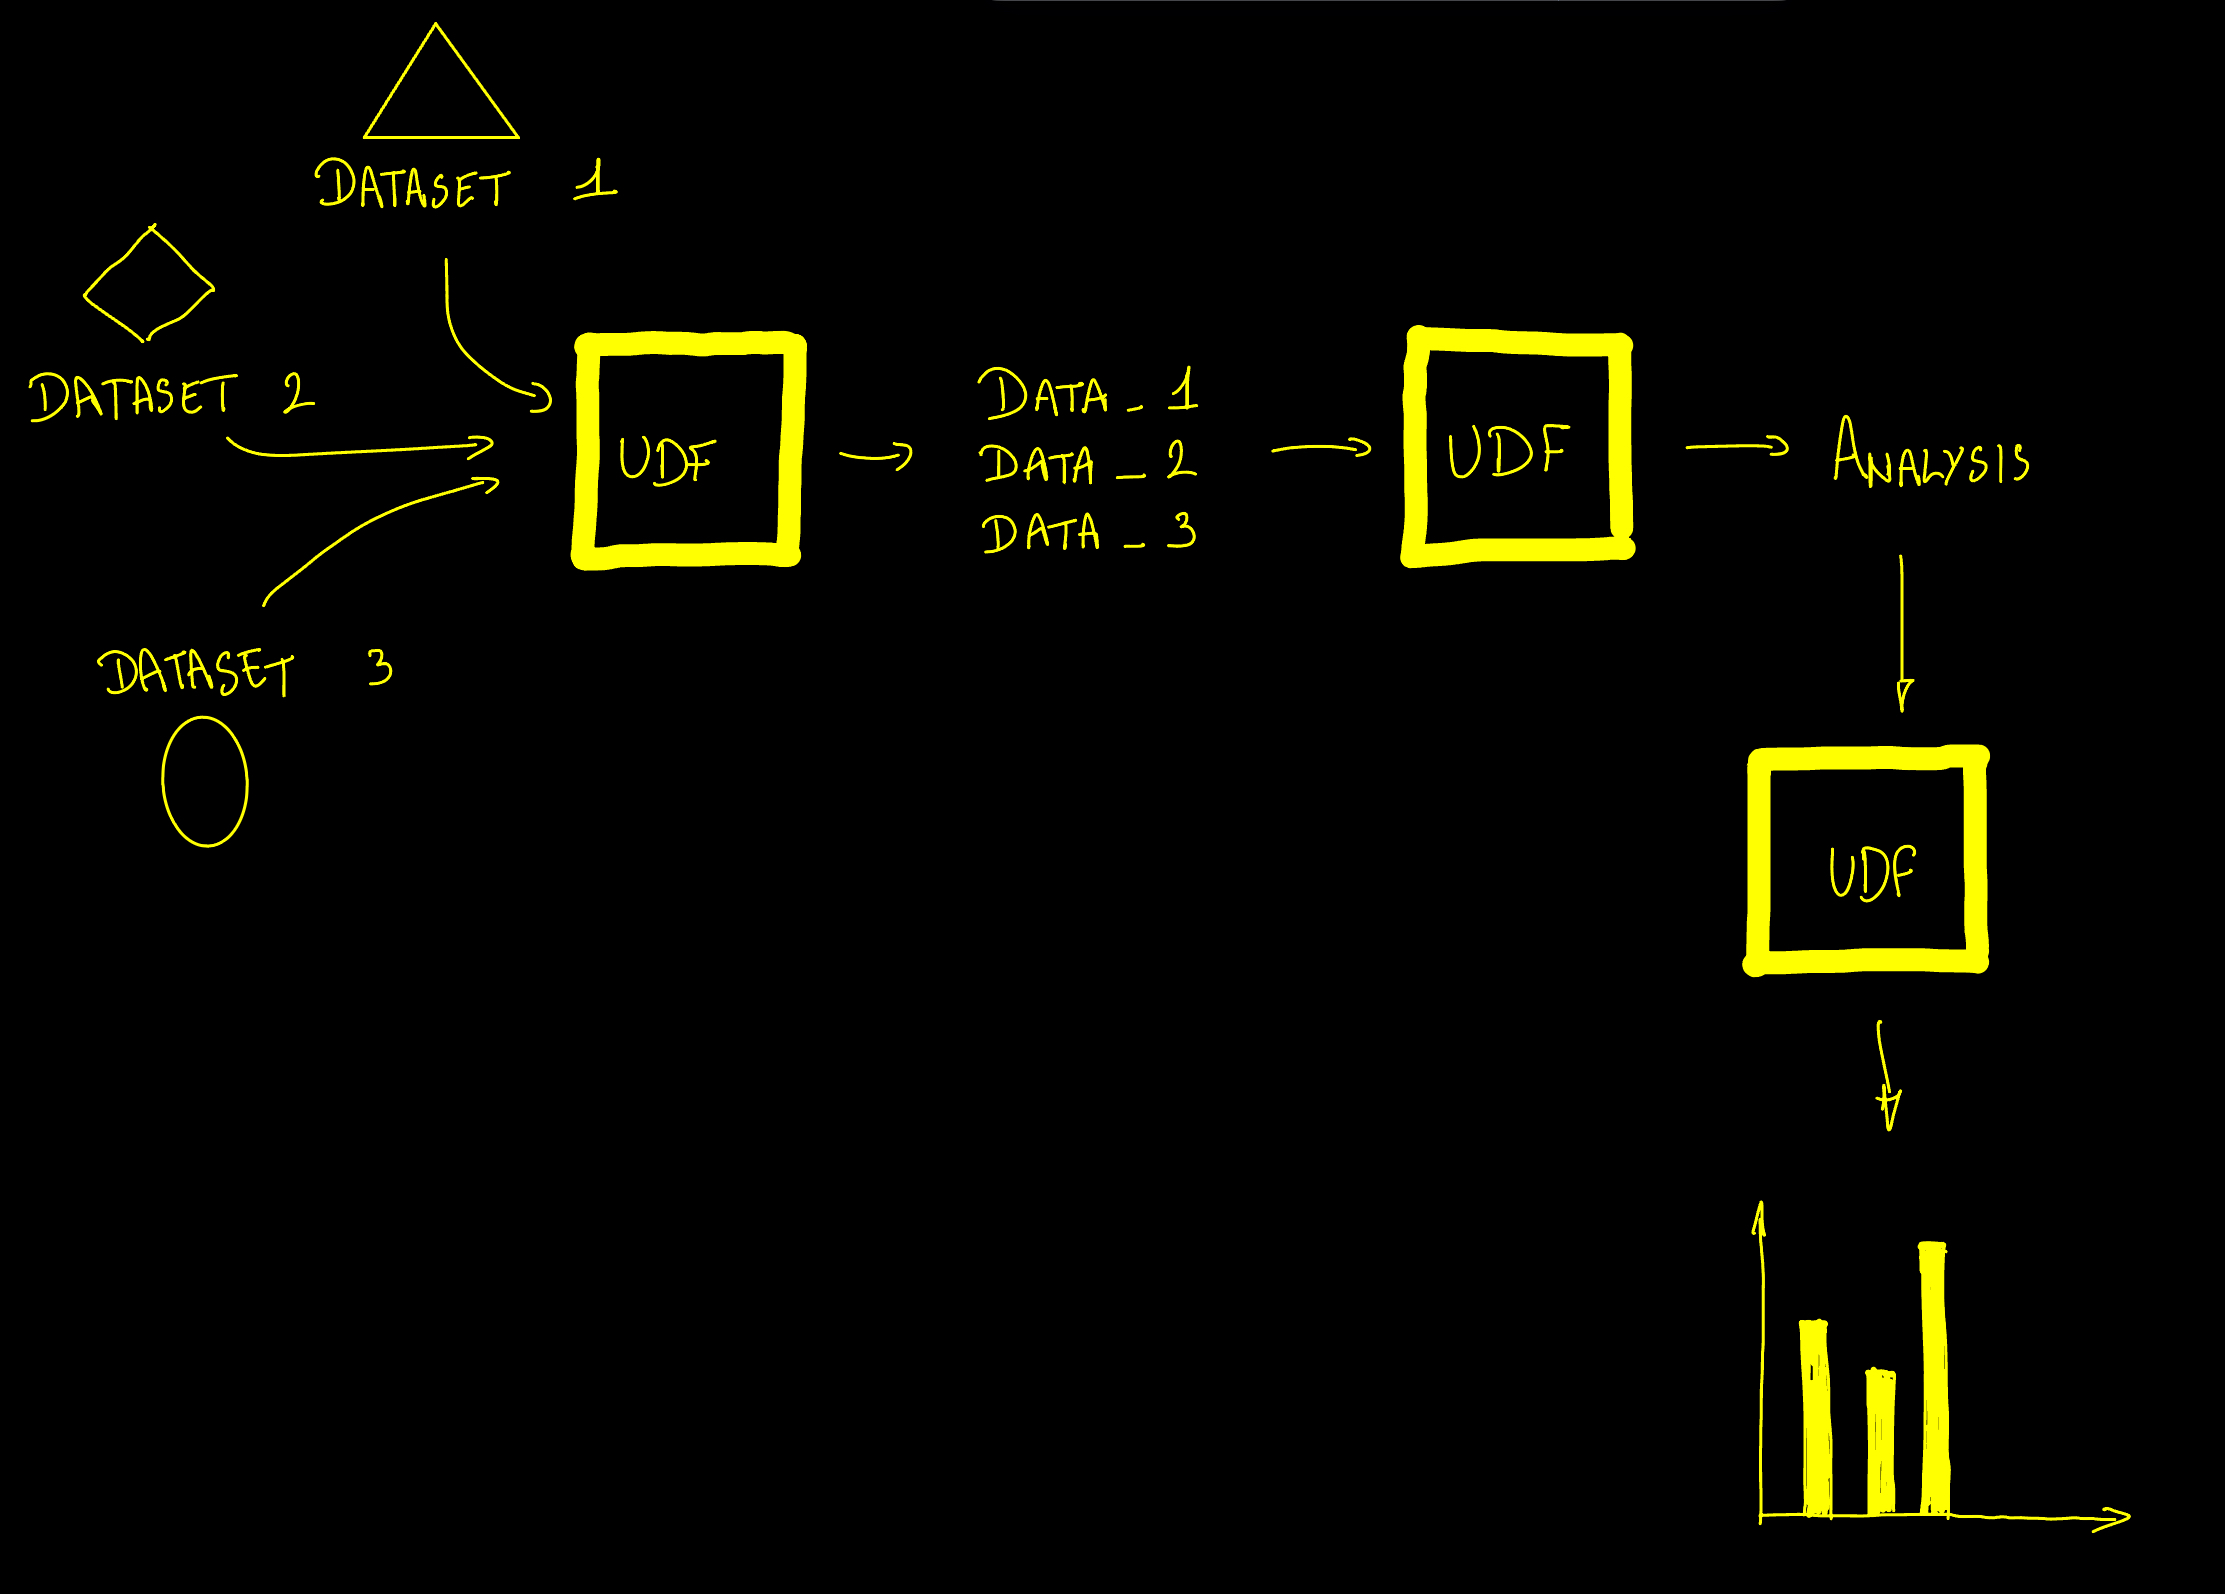 DATASET 1
DATASET 2
DATASET 3
UDF
DATA_1
DATA_2
DATA_3
UDF
ANALYSIS
UDF